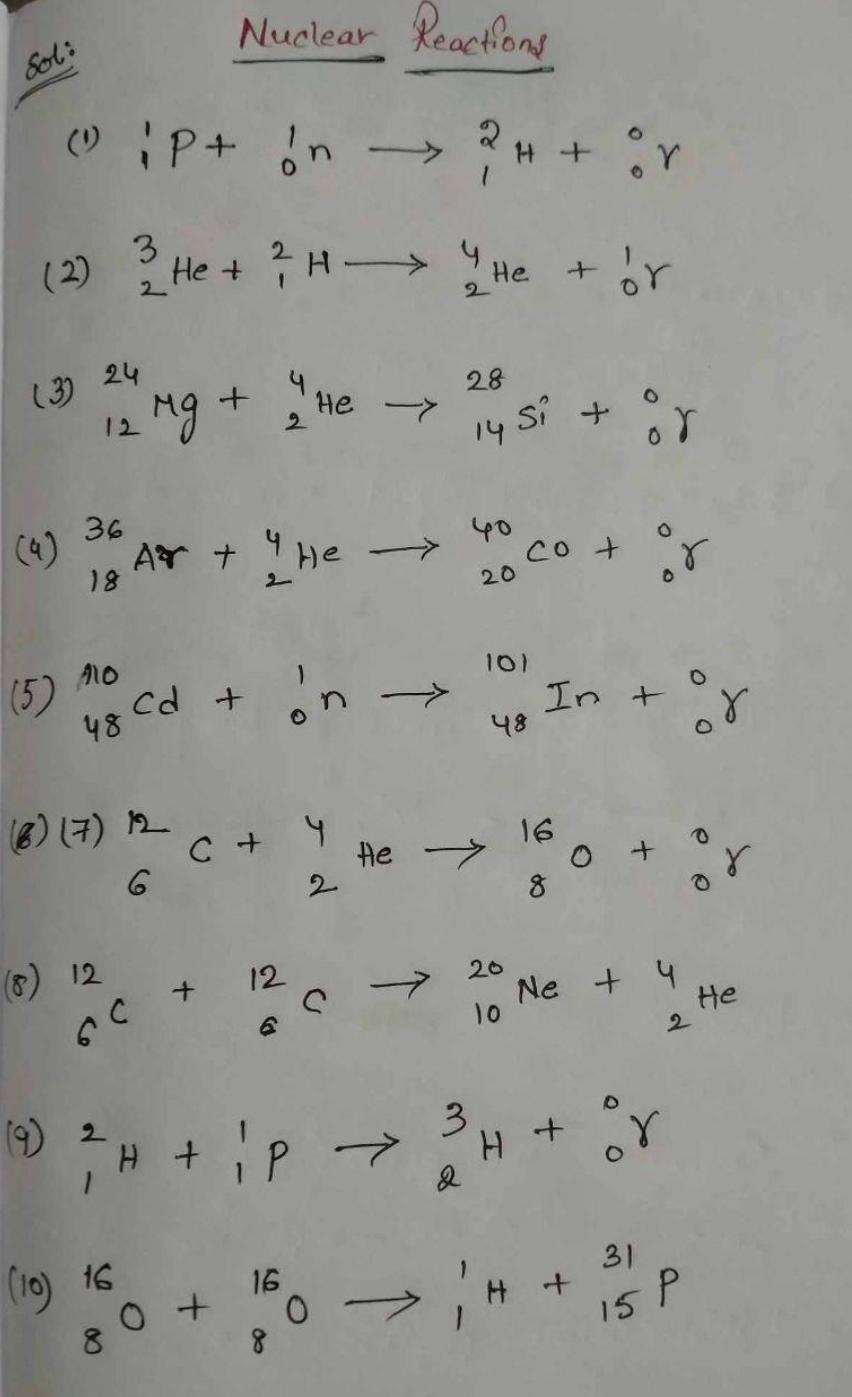 Nuclear Reactions
Sol:
(1) ¹₁P + ¹₀n → ²₁H + ⁰₀γ
(2) ³₂He + ²₁H → ⁴₂He + ¹₀γ
(3) ²⁴₁₂Mg + ⁴₂He → ²⁸₁₄Si + ⁰₀γ
(4) ³⁶₁₈Ar + ⁴₂He → ⁴⁰₂₀CO + ⁰₀γ
(5) ¹¹⁰₄₈Cd + ¹₀n → ¹⁰¹₄₈In + ⁰₀γ
(6) (7) ¹²₆C + ⁴₂He → ¹⁶₈O + ⁰₀γ
(8) ¹²₆C + ¹²₆C → ²⁰₁₀Ne + ⁴₂He
(9) ²₁H + ¹₁P → ³₂H + ⁰₀γ
(10) ¹⁶₈O + ¹⁶₈O → ¹₁H + ³¹₁₅P